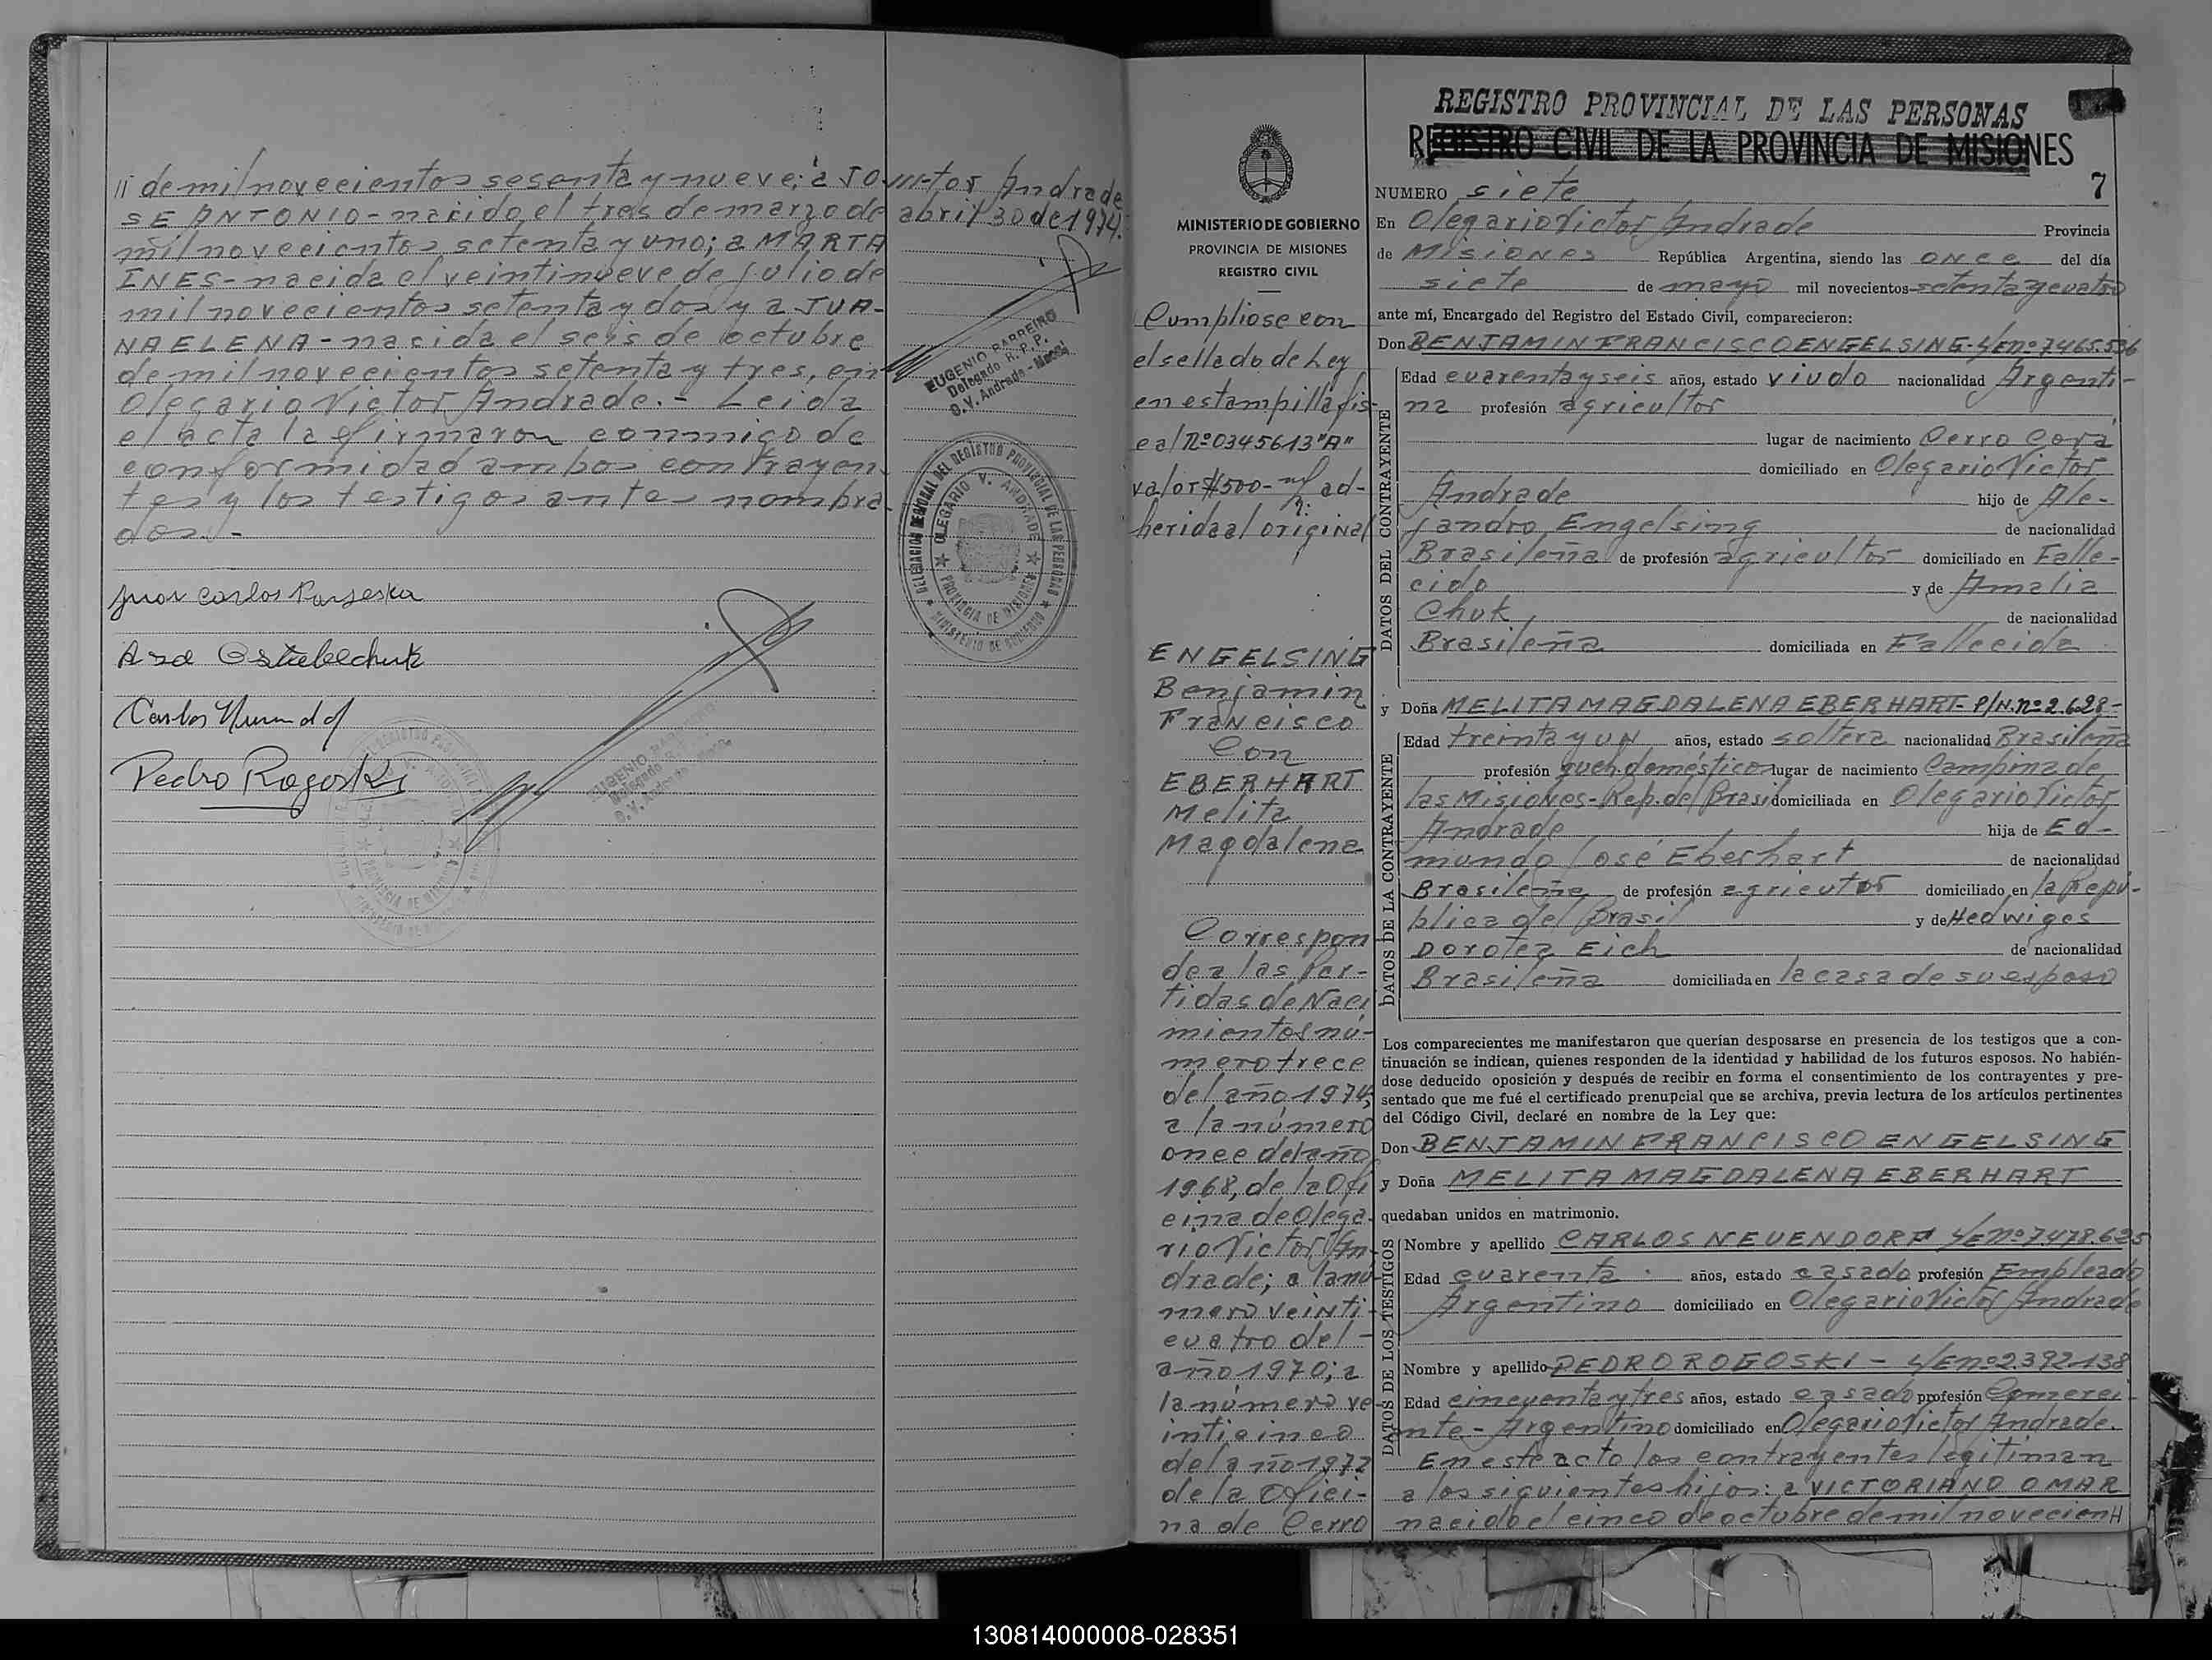 // de mil novecientos sesenta y nueve; a JO
SE ANTONIO - nacido el tres de marzo de
mil novecientos setenta y uno; a MARTA
INES - nacida el veintinueve de julio de
mil novecientos setenta y dos y a JUA-
NA ELENA - nacida el seis de octubre
de mil novecientos setenta y tres, en
Olegario Victor Andrade. - Leida
el acta la firmaron conmigo de
conformidad ambos contrayen-
tes y los testigos antes nombra
dos. -
Juan Carlos
Ana
Carlos
Pedro Rogoski
///-tor Andrade
abril 30 de 1974.
EUGENIO BARREIRO
Delegado R. P. P.
O. V. Andrade - Mnes
DELEGACION REGIONAL DEL REGISTRO PROVINCIAL DE LAS PERSONAS
OLEGARIO V. ANDRADE
PROVINCIA DE MISIONES
MINISTERIO DE GOBIERNO
MINISTERIO DE GOBIERNO
PROVINCIA DE MISIONES
REGISTRO CIVIL
Cumpliose con
el sellado de Ley
en estampilla fis-
cal Nº 0345613 "A"
valor $500- m/n. ad-
herida al original
ENGELSING
Benjamin
Francisco
Con
EBERHART
Melita
Magdalena
Correspon
de a las Par-
tidas de Naci
mientos nú-
mero trece
del año 1974;
a la número
once del año
1968, de la Ofi
cina de Olega-
rio Victor An-
drade; a la nú-
mero veinti-
cuatro del -
año 1970; a
la número ve
inticinco
del año 1972
de la Ofici-
na de Cerro
REGISTRO PROVINCIAL DE LAS PERSONAS
REGISTRO CIVIL DE LA PROVINCIA DE MISIONES
7
NUMERO siete
En Olegario Victor Andrade Provincia
de Misiones República Argentina, siendo las once del día
siete de mayo mil novecientos setenta y cuatro
ante mí, Encargado del Registro del Estado Civil, comparecieron:
Don BENJAMIN FRANCISCO ENGELSING - L/E nº 7465.536
DATOS DEL CONTRAYENTE
Edad cuarenta y seis años, estado viudo nacionalidad Argenti-
na profesión agricultor
lugar de nacimiento Cerro Corá
domiciliado en Olegario Victor
Andrade hijo de Ale-
jandro Engelsing de nacionalidad
Brasileña de profesión agricultor domiciliado en Falle-
cido y de Amalia
Chuk de nacionalidad
Brasileña domiciliada en Fallecida
y Doña MELITA MAGDALENA EBERHART - P/N. nº 2.628 -
DATOS DE LA CONTRAYENTE
Edad treinta y un años, estado soltera nacionalidad Brasileña
profesión queh. doméstico lugar de nacimiento Campina de
las Misiones - Rep. del Brasil domiciliada en Olegario Victor
Andrade hija de Ed-
mundo José Eberhart de nacionalidad
Brasileña de profesión agricultor domiciliado en la Repú-
blica del Brasil y de Hedwiges
Dorotea Eich de nacionalidad
Brasileña domiciliada en la casa de su esposo
Los comparecientes me manifestaron que querían desposarse en presencia de los testigos que a con-
tinuación se indican, quienes responden de la identidad y habilidad de los futuros esposos. No habién-
dose deducido oposición y después de recibir en forma el consentimiento de los contrayentes y pre-
sentado que me fué el certificado prenupcial que se archiva, previa lectura de los artículos pertinentes
del Código Civil, declaré en nombre de la Ley que:
Don BENJAMIN FRANCISCO ENGELSING
y Doña MELITA MAGDALENA EBERHART
quedaban unidos en matrimonio.
DATOS DE LOS TESTIGOS
Nombre y apellido CARLOS NEUENDORF L/E nº 7478.625
Edad cuarenta años, estado casado profesión Empleado
Argentino domiciliado en Olegario Victor Andrade
Nombre y apellido PEDRO ROGOSKI - L/E nº 2392138
Edad cincuenta y tres años, estado casado profesión Comerci-
nte - Argentino domiciliado en Olegario Victor Andrade.
En este acto los contrayentes legitiman
a los siguientes hijos: a VICTORIANO OMAR
nacido el cinco de octubre de mil novecien//
130814000008-028351